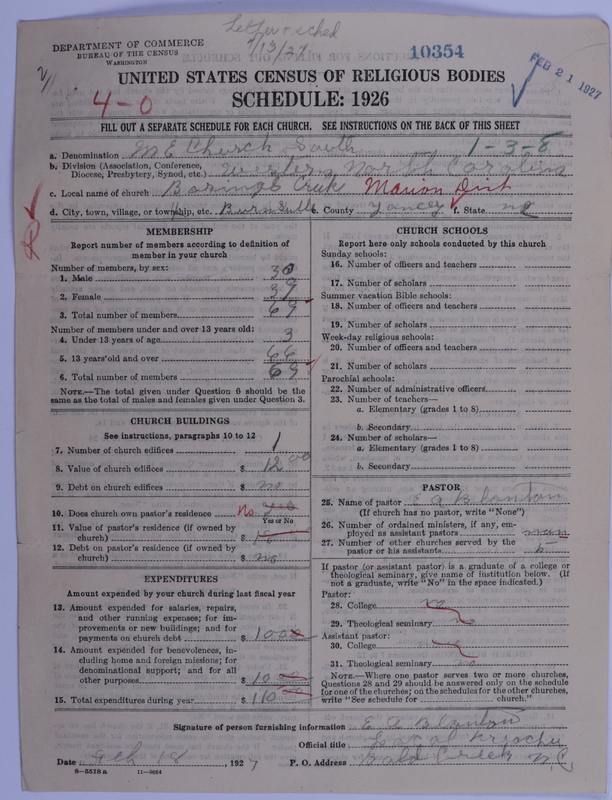 Letter & sched
9/13/27
DEPARTMENT OF COMMERCE
BUREAU OF THE CENSUS
WASHINGTON
10354
FEB 21 1927
UNITED STATES CENSUS OF RELIGIOUS BODIES
4-0
SCHEDULE: 1926
FILL OUT A SEPARATE SCHEDULE FOR EACH CHURCH. SEE INSTRUCTIONS ON THE BACK OF THIS SHEET
a. Denomination M E Church South 1-3-8
b. Division (Association, Conference, Diocese, Presbytery, Synod, etc.) Western North Carolina
c. Local name of church Creek Marion Dist
d. City, town, village, or township, etc. e. County Yancey f. State NC
MEMBERSHIP
Report number of members according to definition of member in your church
Number of members, by sex:
1. Male 30
2. Female 39
3. Total number of members 69
Number of members under and over 13 years old:
4. Under 13 years of age 3
5. 13 years old and over 66
6. Total number of members 69
NOTE.—The total given under Question 6 should be the same as the total of males and females given under Question 3.
CHURCH BUILDINGS
See instructions, paragraphs 10 to 12
7. Number of church edifices 1
8. Value of church edifices $ 1200
9. Debt on church edifices $ no
10. Does church own pastor's residence No
Yes or No
11. Value of pastor's residence (if owned by church) $
12. Debt on pastor's residence (if owned by church) $ no
EXPENDITURES
Amount expended by your church during last fiscal year
13. Amount expended for salaries, repairs, and other running expenses; for improvements or new buildings; and for payments on church debt $ 100
14. Amount expended for benevolences, including home and foreign missions; for denominational support; and for all other purposes $ 10
15. Total expenditures during year $ 110
CHURCH SCHOOLS
Report here only schools conducted by this church
Sunday schools:
16. Number of officers and teachers
17. Number of scholars
Summer vacation Bible schools:
18. Number of officers and teachers
19. Number of scholars
Week-day religious schools:
20. Number of officers and teachers
21. Number of scholars
Parochial schools:
22. Number of administrative officers
23. Number of teachers—
a. Elementary (grades 1 to 8)
b. Secondary
24. Number of scholars—
a. Elementary (grades 1 to 8)
b. Secondary
PASTOR
25. Name of pastor E A Blanton
(If church has no pastor, write "None")
26. Number of ordained ministers, if any, employed as assistant pastors
27. Number of other churches served by the pastor or his assistants
If pastor (or assistant pastor) is a graduate of a college or theological seminary, give name of institution below. (If not a graduate, write "No" in the space indicated.)
Pastor:
28. College no
29. Theological seminary no
Assistant pastor:
30. College
31. Theological seminary no
NOTE.—Where one pastor serves two or more churches, Questions 28 and 29 should be answered only on the schedule for one of the churches; on the schedules for the other churches, write "See schedule for church."
Signature of person furnishing information E A Blanton
Official title Local
Date Feb 18, 1927 P. O. Address Bald Creek N.C.
8-5518a 11-9654